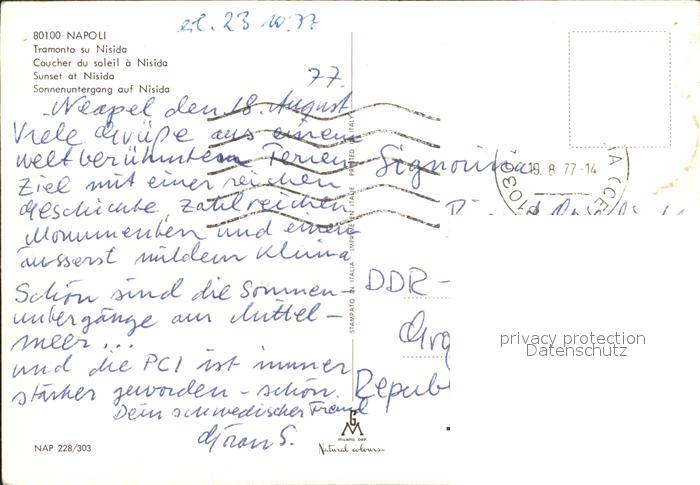 erl. 23 10. 77
80100 NAPOLI
Tramonto su Nisida
Coucher du soleil à Nisida
Sunset at Nisida
Sonnenuntergang auf Nisida
77.
Neapel den 18. August
Viele Grüße aus einem
weltberühmten Ferien-
Ziel mit einer reichen
Geschichte, zahlreichen
Monumenten und einem
äusserst mildem Klima
Schön sind die Sonnen-
untergänge am Mittel-
meer...
und die PCI ist immer
stärker geworden - schön.
Dein schwedischer Freund
Göran S.
NAP 228/303
STAMPATO IN ITALIA IMPRIMÉ EN ITALIE PRINTED IN ITALY
MILANO DEP.
Natural colours
19. 8 77-14
Signorina
DDR -
Repub
privacy protection
Datenschutz